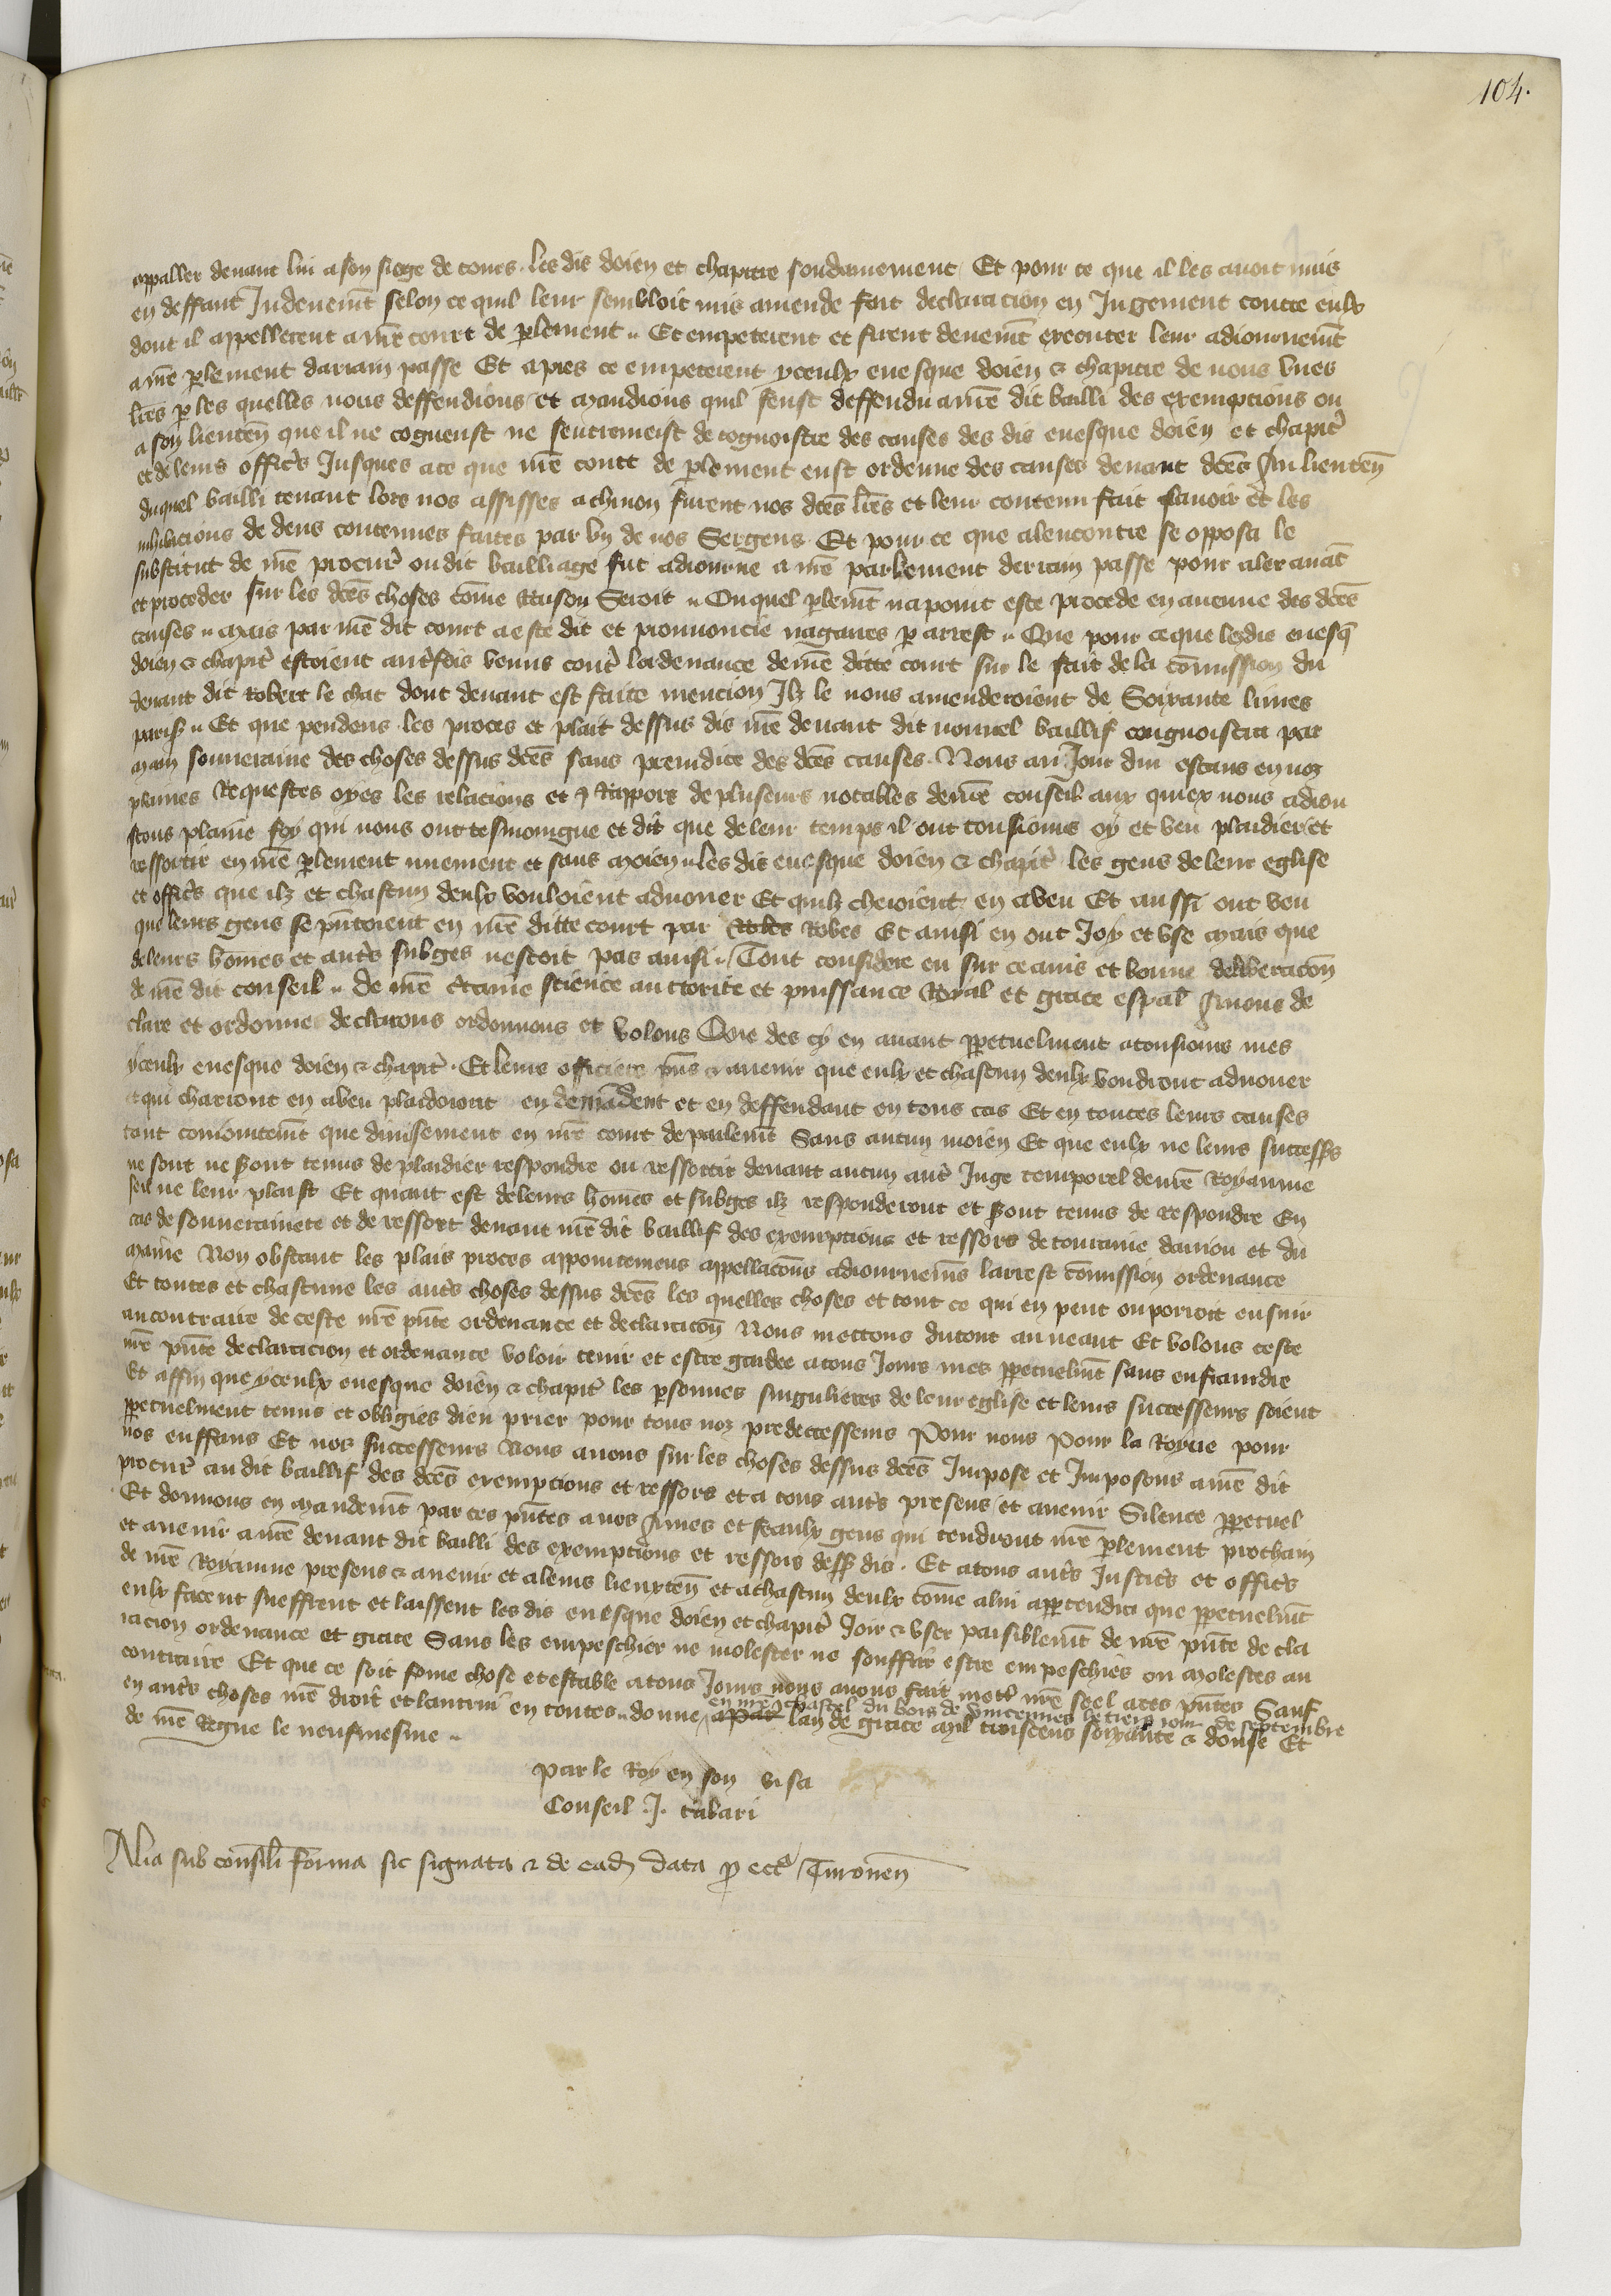 104.
appaller devant lui a son siege de tours. les dis doien et chapitre soudainement Et pour ce que il les avoit mis
en deffaut Induement selon ce quil leur sembloit mis amende fait declaracion en Jugement contre eulx
dont il appellerent a nre court de plement Et empeterent et firent deuemt executer leur adiournemt
a nre plement darrain passe Et apres ce empeterent yceulx evesque doien & chapitre de nous unes
lres p les quelles nous deffendions et mandions quil feust deffendu a nre dit bailli des exempcions ou
a son lieuten que il ne cogneust ne sentremeist de cognoistre des causes des dis evesque doien et chapitr
et de leurs offices Jusques a ce que nre court de plement eust ordenne des causes devant dces Au lieuten
duquel bailli tenant lors nos assisses a chinon furent nos dces lres et leur contenu fait savoir et les
inhibicions de dens contenues faites par un de nos Sergens Et pour ce que alencontre se opposa le
substitut de nre procur oudit bailliage fut adiourne a nre parlement derrain passe pour aler avat
et proceder sur les dces choses come Raison Seroit Ouquel plemt na point este procede en aucune des dces
causes mais par nre dit court a este dit et pronuncie nagaires p arrest Que pour ce que lesdis evesq
doien & chapitr estoient autrefois venus contr lordenance de nre ditte court sur le fait de la comission du
devant dit Robert le chat dont devant est faite mencion Ilz le nous amenderoient de Soixante livres
paris Et que pendens les proces et plait dessus dis nre devant dit nouvel baillif congnoistra par
main souveraine des choses dessus dces sans preiudice des dces causes. Nous au Jour dui estans en noz
plaines Requestes oyes les relacions et Rappors de pluseurs notables de nre conseil aux quiex nous adiou
stons plaine foy qui nous ont tesmoingne et dit que de leur temps il ont tousiours oy et veu plaidier et
ressortir en nre plement nuement et sans moien les dis evesque doien & chapitr les gens de leur eglise
et offices que ilz et chascun deulx vouloient advouer Et quilz cheoient en aveu Et aussi ont veu
que leurs gens se pntoient en nre ditte court par Robes Robes Et ainsi en ont Joy et use mais que
de leurs homes et autrs subges nestoit pas ainsi Tout considere eu sur ce avis et bonne deliberacon
de nre dit conseil de nre ctaine science auctorite et puissance Royal et grace espal Avons de
clare et ordonne declarons ordonnons et volons Que des cy en avant ppetuelment a tousiours mes
yceulx evesque doien & chapitr. Et leurs officiers pns & avenir que eulx et chascun deulx voudront advouer
et qui charront en aveu plaidoient en demadent et en deffendant en tous cas Et en toutes leurs causes
tant coniointemt que divisement en nre court de parlemt Sans aucun moien Et que eulx ne leurs success
ne sont ne sont tenus de plaidier respondre ou ressortir devant aucun autr Juge temporel de nre Royaume
sen ne leur plaist Et quant est de leurs homes et subges ilz responderont et sont tenus de respondre En
cas de souverainete et de ressort devant nre dit baillif des exempcions et ressors de touraine danjou et du
maine Non obstant les plais proces appointemens appellacons adiournemns larrest comission ordenance
Et toutes et chascune les autrs choses dessus dces les quelles choses et tout ce qui en peut ou porroit ensuir
au contraire de ceste nre pnte ordenance et declaracon Nous mettons dutout au neant Et volons ceste
nre pnte declaracion et ordenance voloir tenir et estre gardee a tous Jours mes ppetuelmt sans enfraindre
Et affin que yceulx evesque doien & chapitr les psonnes singulieres de leur eglise et leurs successeurs soient
ppetuelment tenus et obligies dieu prier pour tous noz predecesseurs Pour nous Pour la Royne pour
nos enffans Et nos successeurs Nous avons sur les choses dessus dces Impose et Imposons a nre dit
procur au dit baillif des dces exempcions et ressors et a tous autrs presens et avenir Silence ppetuel
Et donnons en mandemt par ces pntes a nos Ames et feaulx gens qui tendront nre plement prochain
et avenir a nre devant dit bailli des exempcions et ressors dess dis. Et a tous autrs Justices et offices
de nre Royaume presens & avenir et a leurs lieuxten et a chascun deulx come a lui appertendra que ppetuelmt
eulx facent sueffrent et laissent les dis evesque doien et chapitr Joir & user paisiblemt de nre pnte de cla
racion ordenance et grace Sans les empeschier ne molester ne souffrir estre empeschies ou molestes au
contraire Et que ce soit ferme chose et estable a tous Jours nous avons fait mettr nre seel a ces pntes Sauf
en autrs choses nre droit et lautrui en toutes donne a par lan de grace mil troiscens soixante & douse Et
en nre chastel du bois de vincennes le tiers jour de septembre
de nre Regne le neufviesme
par le Roy en son visa
Conseil J. tabari
Alia sub consili forma sic signata & de ead data p eccl Turonen